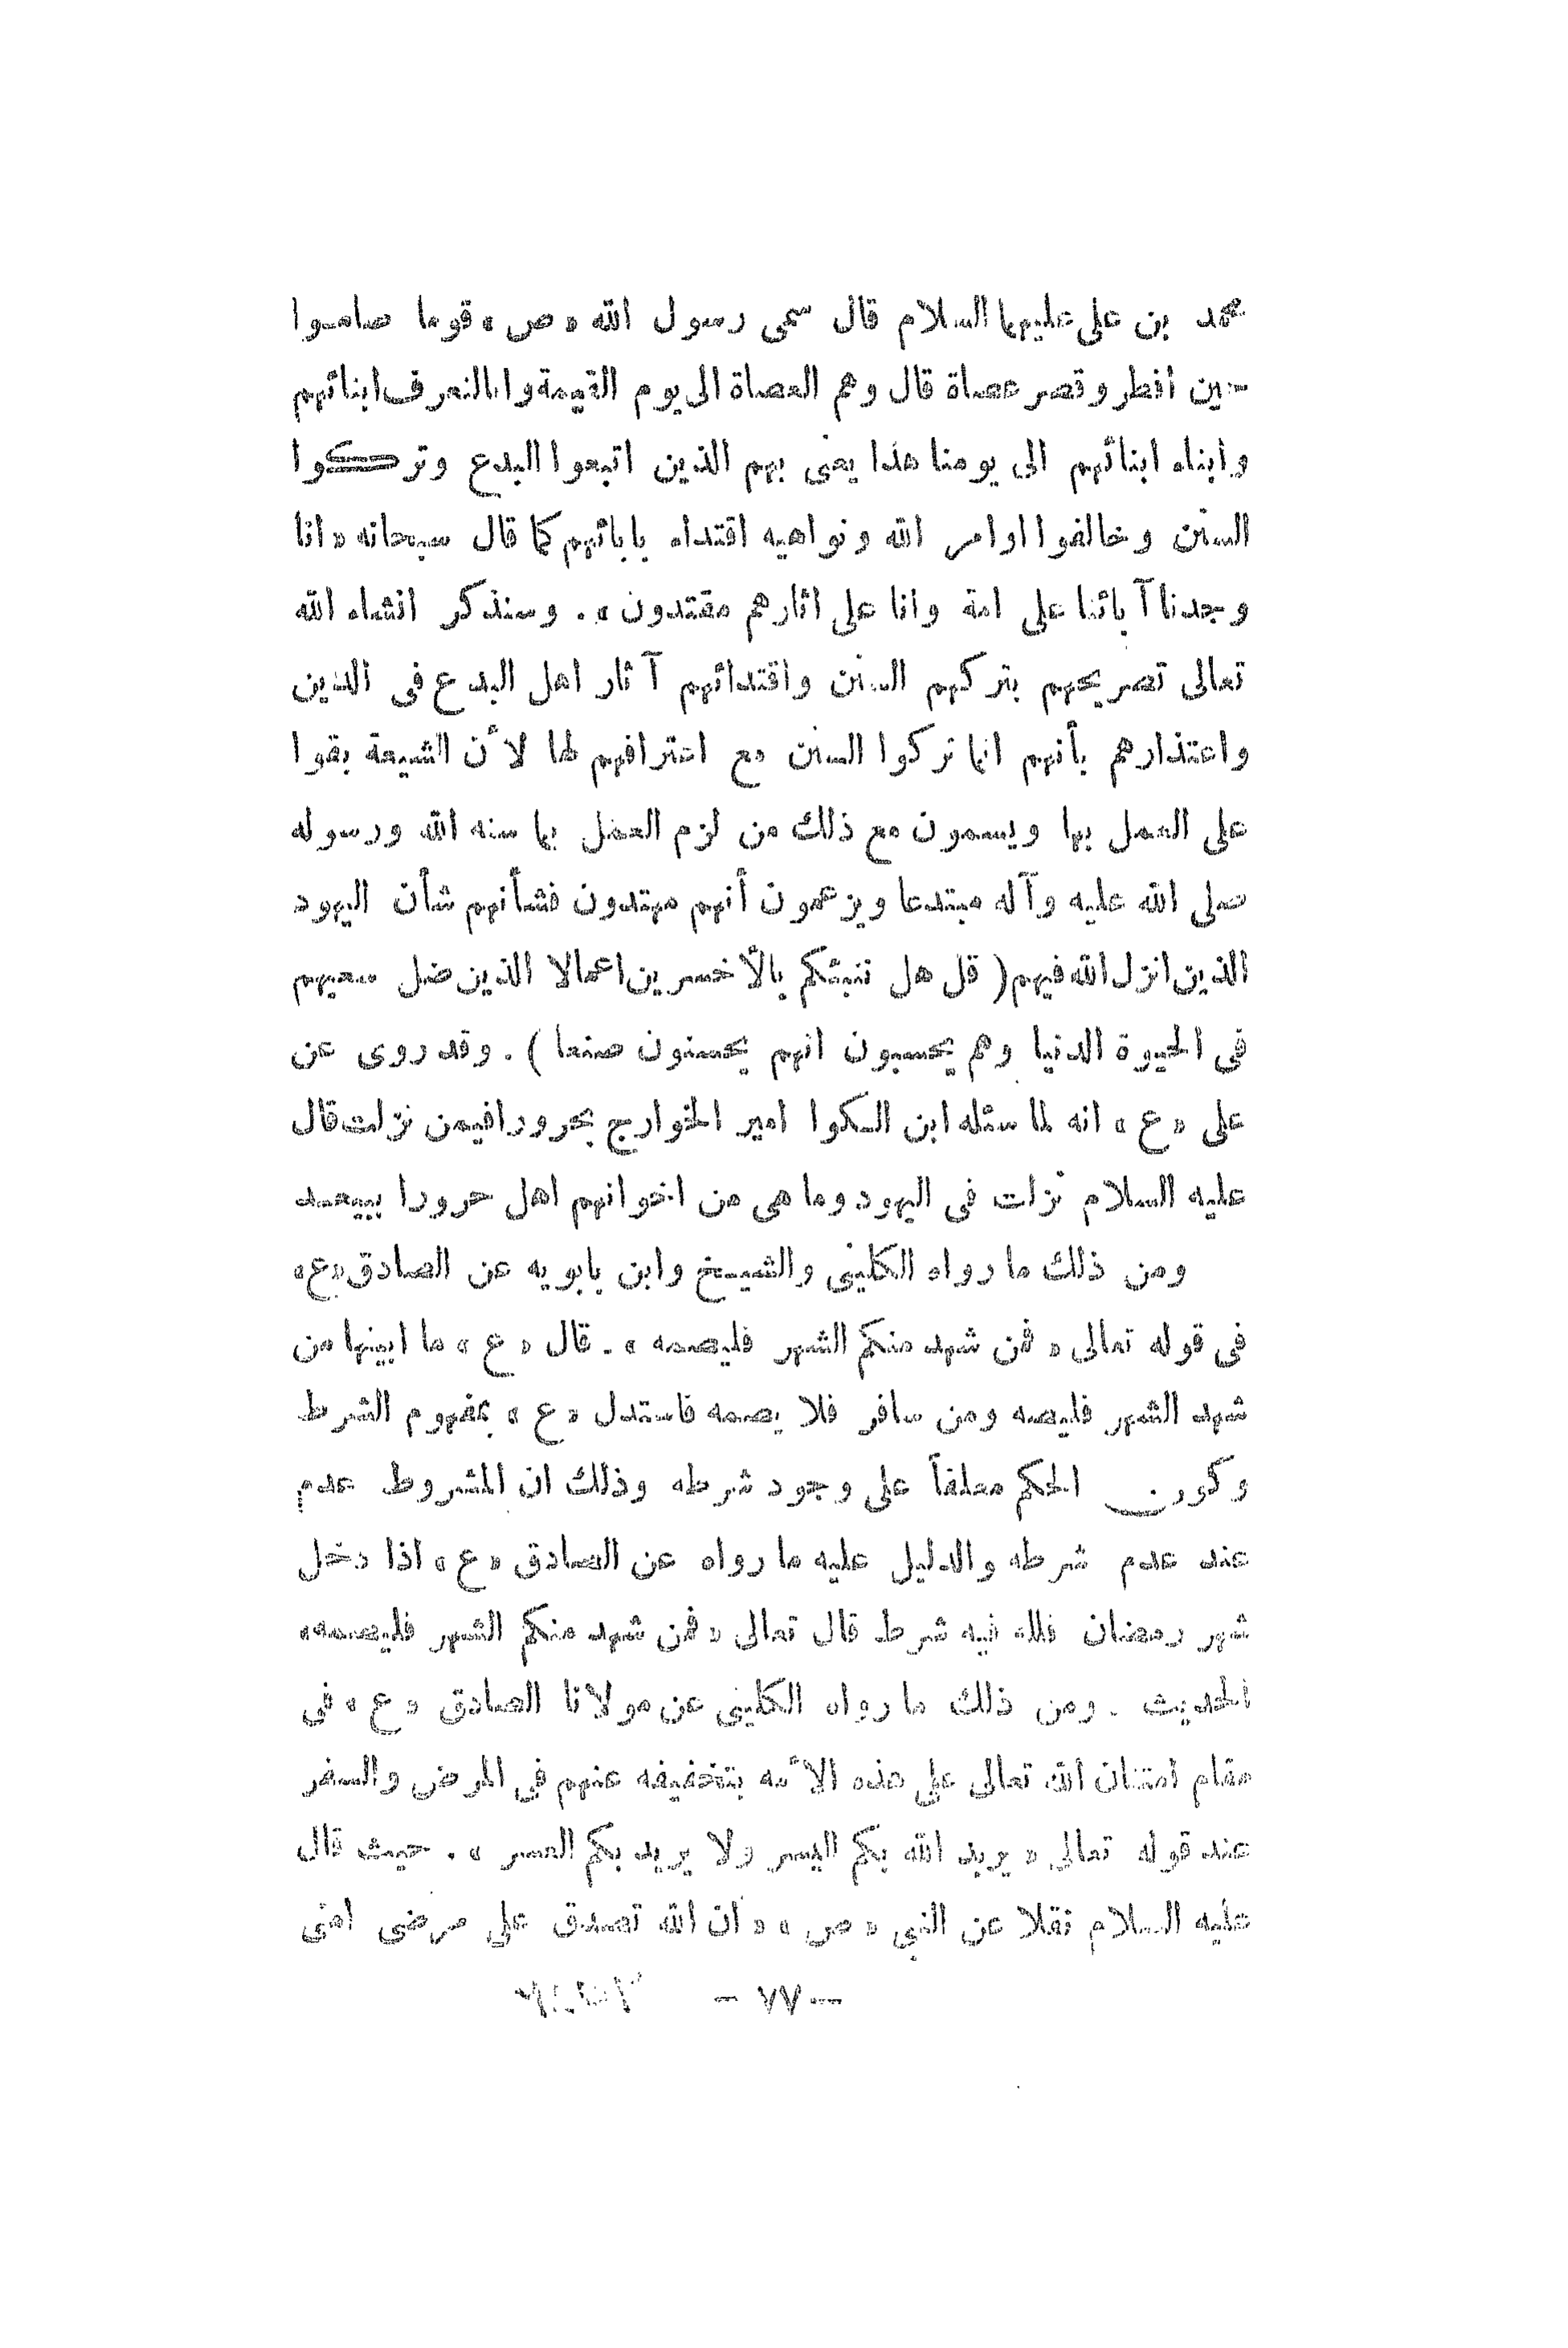 محمد بن على عليهما السلام قال سمى رسول الله «ص» قوما صاموا
حين افطر وقصر عصاة قال وهم العصاة الى يوم القيمة وانا لنعرف ابنائهم
وابناء ابنائهم الى يومنا هذا يعنى بهم الذين اتبعوا البدع وتركوا
السنن وخالفوا اوامر الله ونواهيه اقتداء بابائهم كما قال سبحانه «انا
وجدنا آبائنا على امة وانا على اثارهم مقتدون». وسنذكر انشاء الله
تعالى تصريحهم بتركهم السنن واقتدائهم آثار اهل البدع فى الدين
واعتذارهم بأنهم انما تركوا السنن مع اعترافهم لها لأن الشيعة بقوا
على العمل بها ويسمون مع ذلك من لزم العمل بما سنه الله ورسوله
صلى الله عليه وآله مبتدعا ويزعمون أنهم مهتدون فشأنهم شأن اليهود
الذين انزل الله فيهم (قل هل ننبئكم بالأخسرين اعمالا الذين ضل سعيهم
فى الحيوة الدنيا وهم يحسبون انهم يحسنون صنعا). وقد روى عن
على «ع» انه لما سئله ابن الكوا امير الخوارج بحرورا فيمن نزلت قال
عليه السلام نزلت فى اليهود وما هى من اخوانهم اهل حرورا ببعيد
ومن ذلك ما رواه الكلينى والشيخ وابن بابويه عن الصادق «ع»
فى قوله تعالى «فمن شهد منكم الشهر فليصمه». قال «ع» ما ابينها من
شهد الشهر فليصه ومن سافر فلا يصمه فاستدل «ع» بمفهوم الشرط
وكون الحكم معلقاً على وجود شرطه وذلك ان المشروط عدم
عند عدم شرطه والدليل عليه ما رواه عن الصادق «ع» اذا دخل
شهر رمضان فلله فيه شرط قال تعالى «فمن شهد منكم الشهر فليصمه»
الحديث. ومن ذلك ما رواه الكلينى عن مولانا الصادق «ع» فى
مقام امتنان الله تعالى على هذه الأمه بتخفيفه عنهم فى المرض والسفر
عند قوله تعالى «يريد الله بكم اليسر ولا يريد بكم العسر». حيث قال
عليه السلام نقلا عن النبى «ص» «ان الله تصدق على مرضى امتى
— ٧٧ —